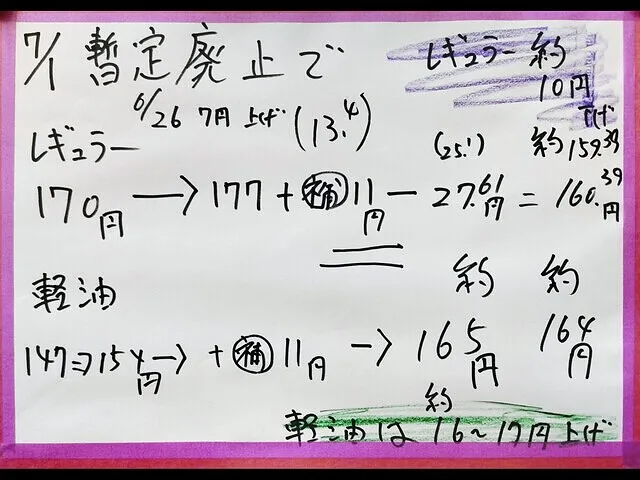 7/1 暫定廃止で
レギュラー 約
10円
下げ
6/26 7円 上げ (13.4)
レギュラー
(25.1) 約 159.39
170円 → 177 + 補 11円 - 27.61円 = 160.39円
軽油
約 約
147⇒154円→ + 補 11円 → 165円 164円
約
軽油は 16~17円 上げ